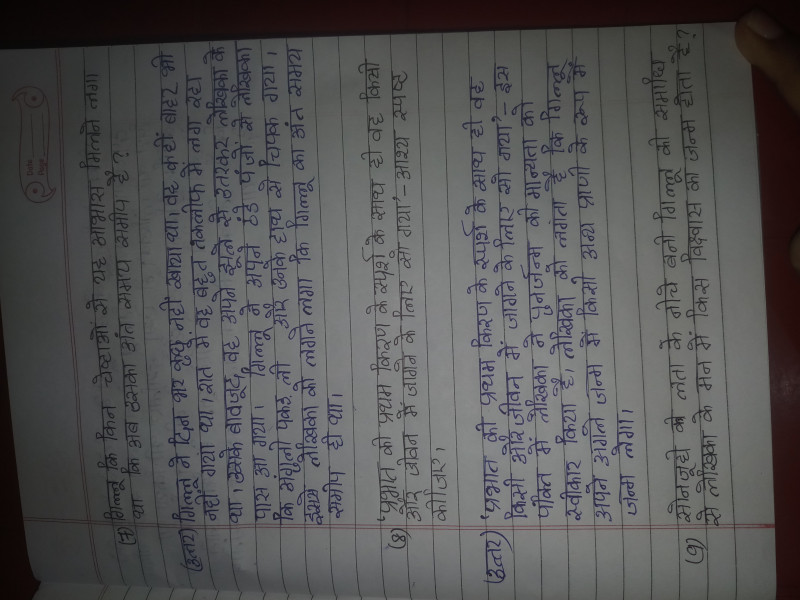 Date
Page
(7) गिल्लू कि किन चेष्टाओं से यह आभास मिलने लगा
था कि अब उसका अंत समय समीप है?
(उत्तर) गिल्लू ने दिन भर कुछ नहीं खाया था। वह कहीं बाहर भी
नहीं गया था। रात में वह बहुत तकलीफ में लग रहा
था। उसके बावजूद, वह अपने झूले से उतरकर लेखिका के
पास आ गया। गिल्लू ने अपने ठंडे पंजों से लेखिका
कि अंगुली पकड़ ली और उनके हाथ से चिपक गया।
इससे लेखिका को लगने लगा कि गिल्लू का अंत समय
समीप ही था।
(8) 'प्रभात की प्रथम किरण के स्पर्श के साथ ही वह किसी
और जीवन में जागने के लिए सो गया' – आशय स्पष्ट
कीजिए।
(उत्तर) 'प्रभात की प्रथम किरण के स्पर्श के साथ ही वह
किसी और जीवन में जागने के लिए सो गया' – इस
पंक्ति में लेखिका ने पुनर्जन्म की मान्यता को
स्वीकार किया है। लेखिका को लगता है कि गिल्लू
अपने अगले जन्म में किसी अन्य प्राणी के रूप में
जन्म लेगा।
(9) सोनजूही की लता के नीचे बनी गिल्लू की समाधि
से लेखिका के मन में किस विश्वास का जन्म होता है?